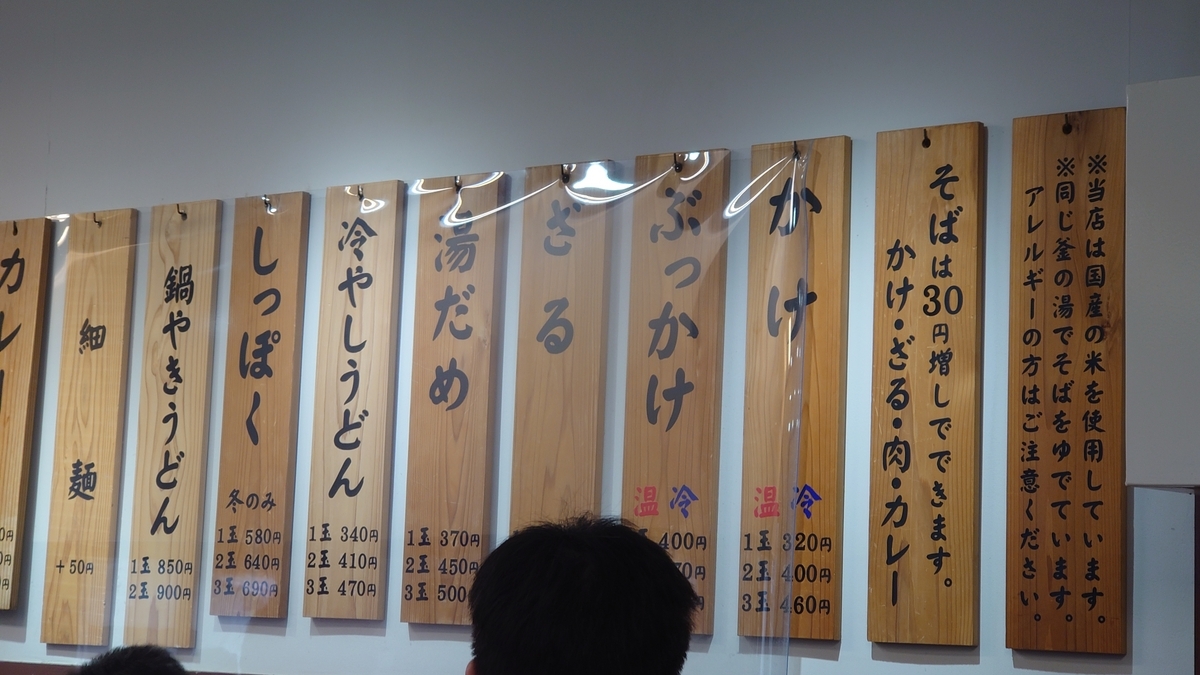 ※当店は国産の米を使用しています。
※同じ釜の湯でそばをゆでています。
アレルギーの方はご注意ください。
そばは30円増しでできます。
かけ・ざる・肉・カレー
かけ
温 冷
1玉 320円
2玉 400円
3玉 460円
ぶっかけ
温 冷
400円
ざる
湯だめ
1玉 370円
2玉 450円
3玉 500
冷やしうどん
1玉 340円
2玉 410円
3玉 470円
しっぽく
冬のみ
1玉 580円
2玉 640円
3玉 690円
鍋やきうどん
1玉 850円
2玉 900円
細麺
+50円
カレー